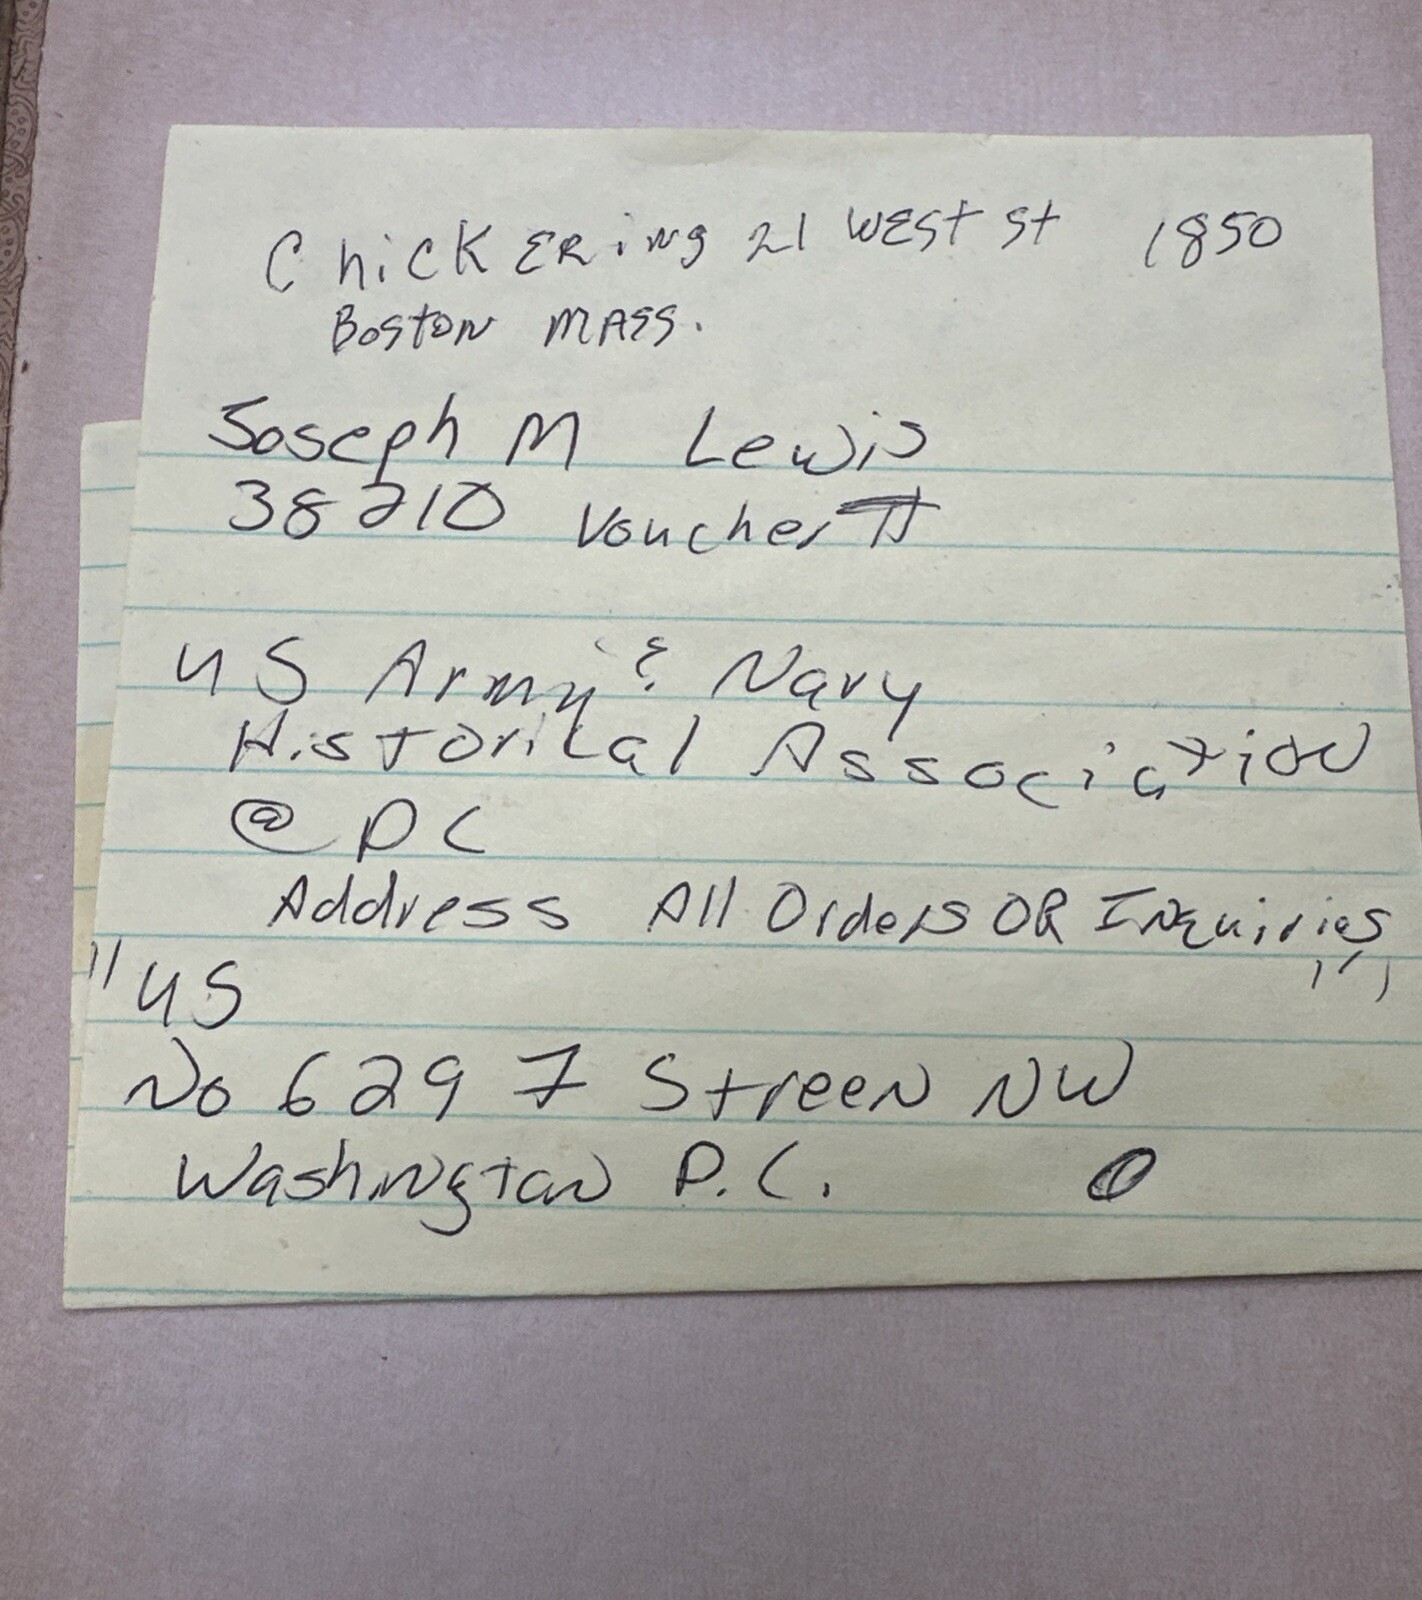 Chickering 21 West St 1850
Boston Mass.
Joseph M Lewis
38210 Voucher #
US Army & Navy
Historical Association
@ DC
Address All Orders OR Inquiries
"US
No 629 7 Streen NW
Washington D.C.